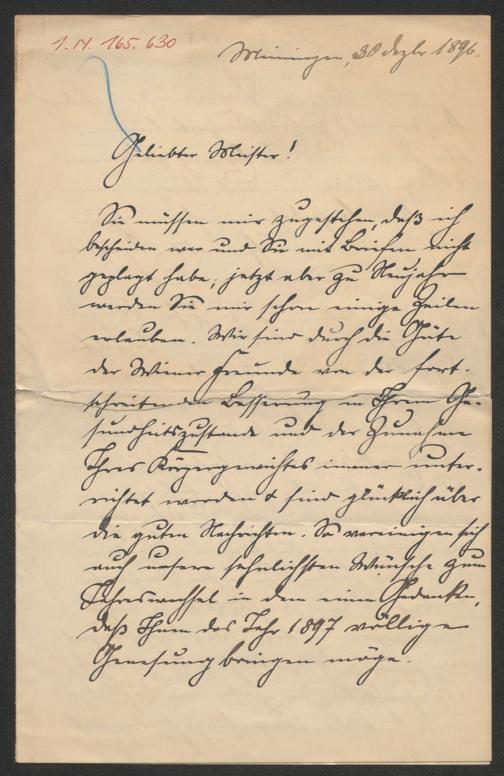 I. N. 165.630
Meiningen, 30 Dezbr 1896.
Geliebter Meister!
Sie müssen mir zugestehen, daß ich
bescheiden war und Sie mit Briefen nicht
geplagt habe; jetzt aber zu Neujahr
werden Sie mir schon einige Zeilen
erlauben. Wir sind durch die Güte
der Wiener Freunde von der fort-
schreitenden Besserung in Ihrem Ge-
sundheitszustande und der Zunahme
Ihres Körpergewichtes immer unter-
richtet worden & sind glücklich über
die guten Nachrichten. So vereinigen sich
auch unsere sehnlichsten Wünsche zum
Jahreswechsel in dem einen Gedanken,
daß Ihnen das Jahr 1897 völlige
Genesung bringen möge.